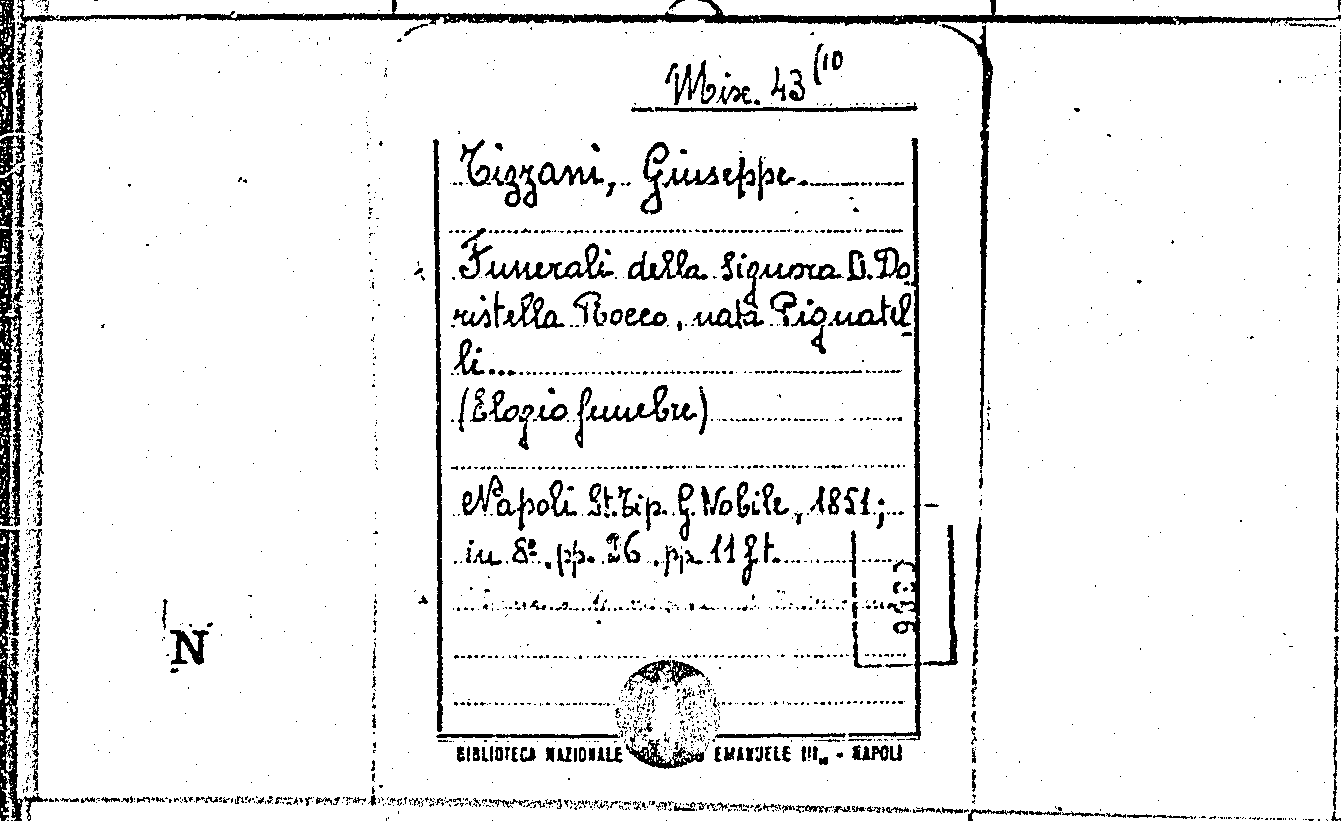 Misc. 43 (10
Tizzani, Giuseppe.
Funerali della Signora D. Do
ristella Rocco, nata Pignatel
li...
(Elogio funebre)
Napoli St. Tip. G. Nobile, 1851;
in 8º. pp. 26. pp. 11 f.t.
N
BIBLIOTECA NAZIONALE EMANUELE III„ - NAPOLI